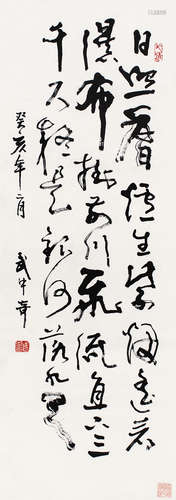 日照香爐生紫烟遙看
瀑布掛前川飛流直下三
千尺疑是銀河落九天
癸亥年二月
武中奇